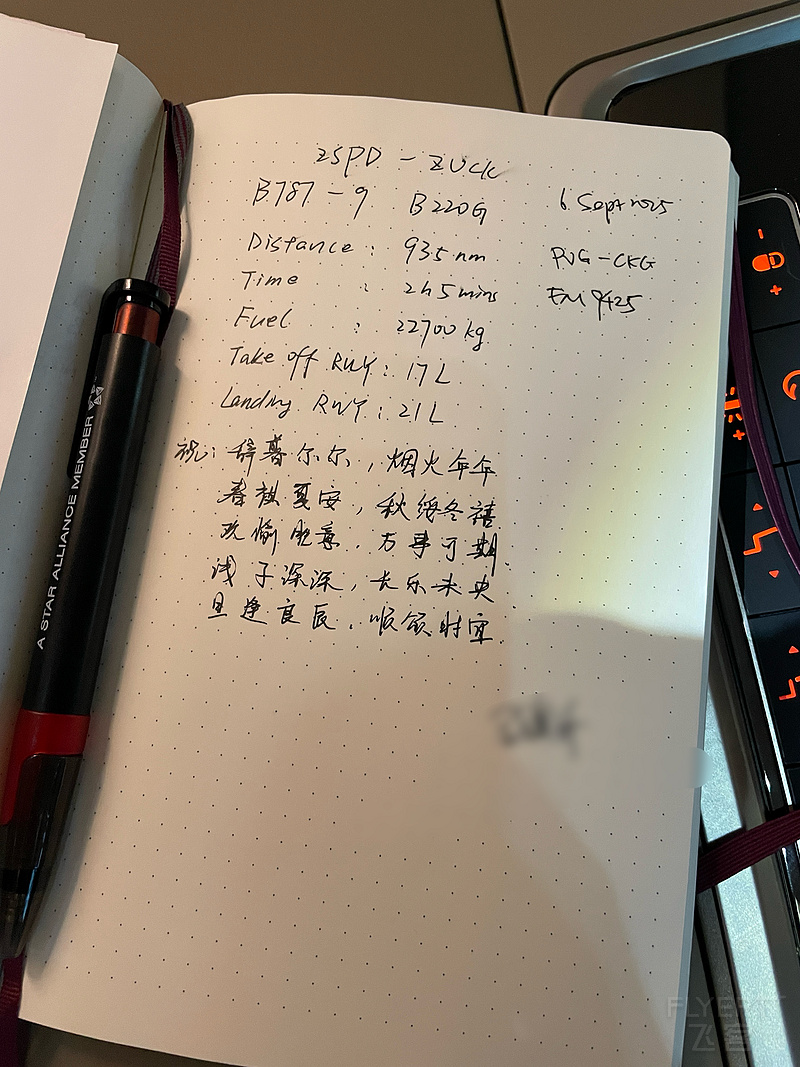 ZSPD - ZUCK
B787-9 B220G 6 Sept 2025
Distance: 935nm PVG-CKG
Time : 2h5mins FM9425
Fuel : 22700kg
Take off RWY: 17L
Landing RWY: 21L
祝: 辞暮尔尔，烟火年年
春祺夏安，秋绥冬禧
欢愉胜意，万事可期
浅予深深，长乐未央
旦逢良辰，顺颂时宜
A STAR ALLIANCE MEMBER
FLYERT
飞客